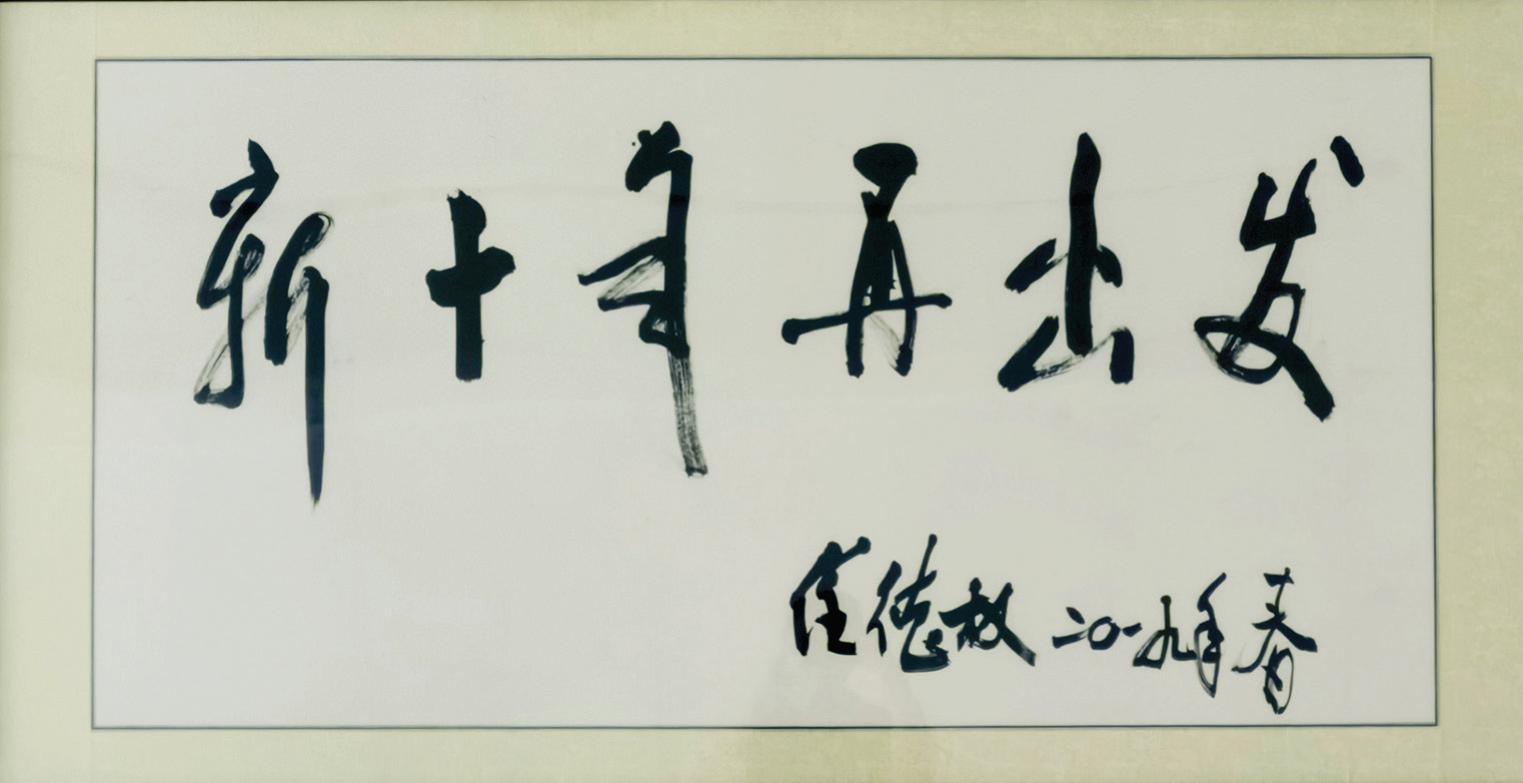 新十年再出发
任德权 二〇一九年春